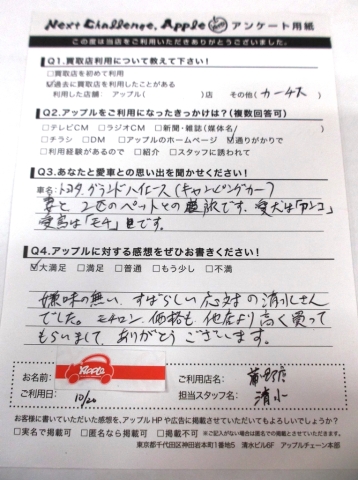 Next Challenge, Apple アンケート用紙
この度は当店をご利用いただきありがとうございました。
Q1.買取店利用について教えて下さい！
□買取店を初めて利用
☑過去に買取店を利用したことがある
利用した店舗： アップル( )店 その他(カーチス)
Q2.アップルをご利用になったきっかけは？(複数回答可)
□テレビCM □ラジオCM □新聞・雑誌(媒体名 )
□チラシ □DM □アップルのホームページ ☑通りがかりで
□利用経験があるので □紹介 □スタッフに誘われて
Q3.あなたと愛車との思い出を聞かせください！
車名：トヨタグランドハイエース(キャンピングカー)
妻と2匹のペットとの
です。愛犬は
愛鳥は「モチ」
です。
Q4.アップルに対する感想をぜひお書きください！
☑大満足 □満足 □普通 □もう少し □不満
嫌味の無い、すばらしい応対の清水さん
でした。モチロン価格も他店より高く買って
もらいまして、ありがとうございます。
お名前： Apple
ご利用店名：
ご利用日： 10/20
担当スタッフ名： 清水
お客様に書いていただいた感想を、アップルHPや広告に掲載させていただいてもよろしいでしょうか？
□実名で掲載可 □匿名なら掲載可 □掲載不可 ※ご記入がない場合は匿名での掲載とさせていただきます。
東京都千代田区神田岩本町1番地5 清水ビル6F アップルチェーン本部